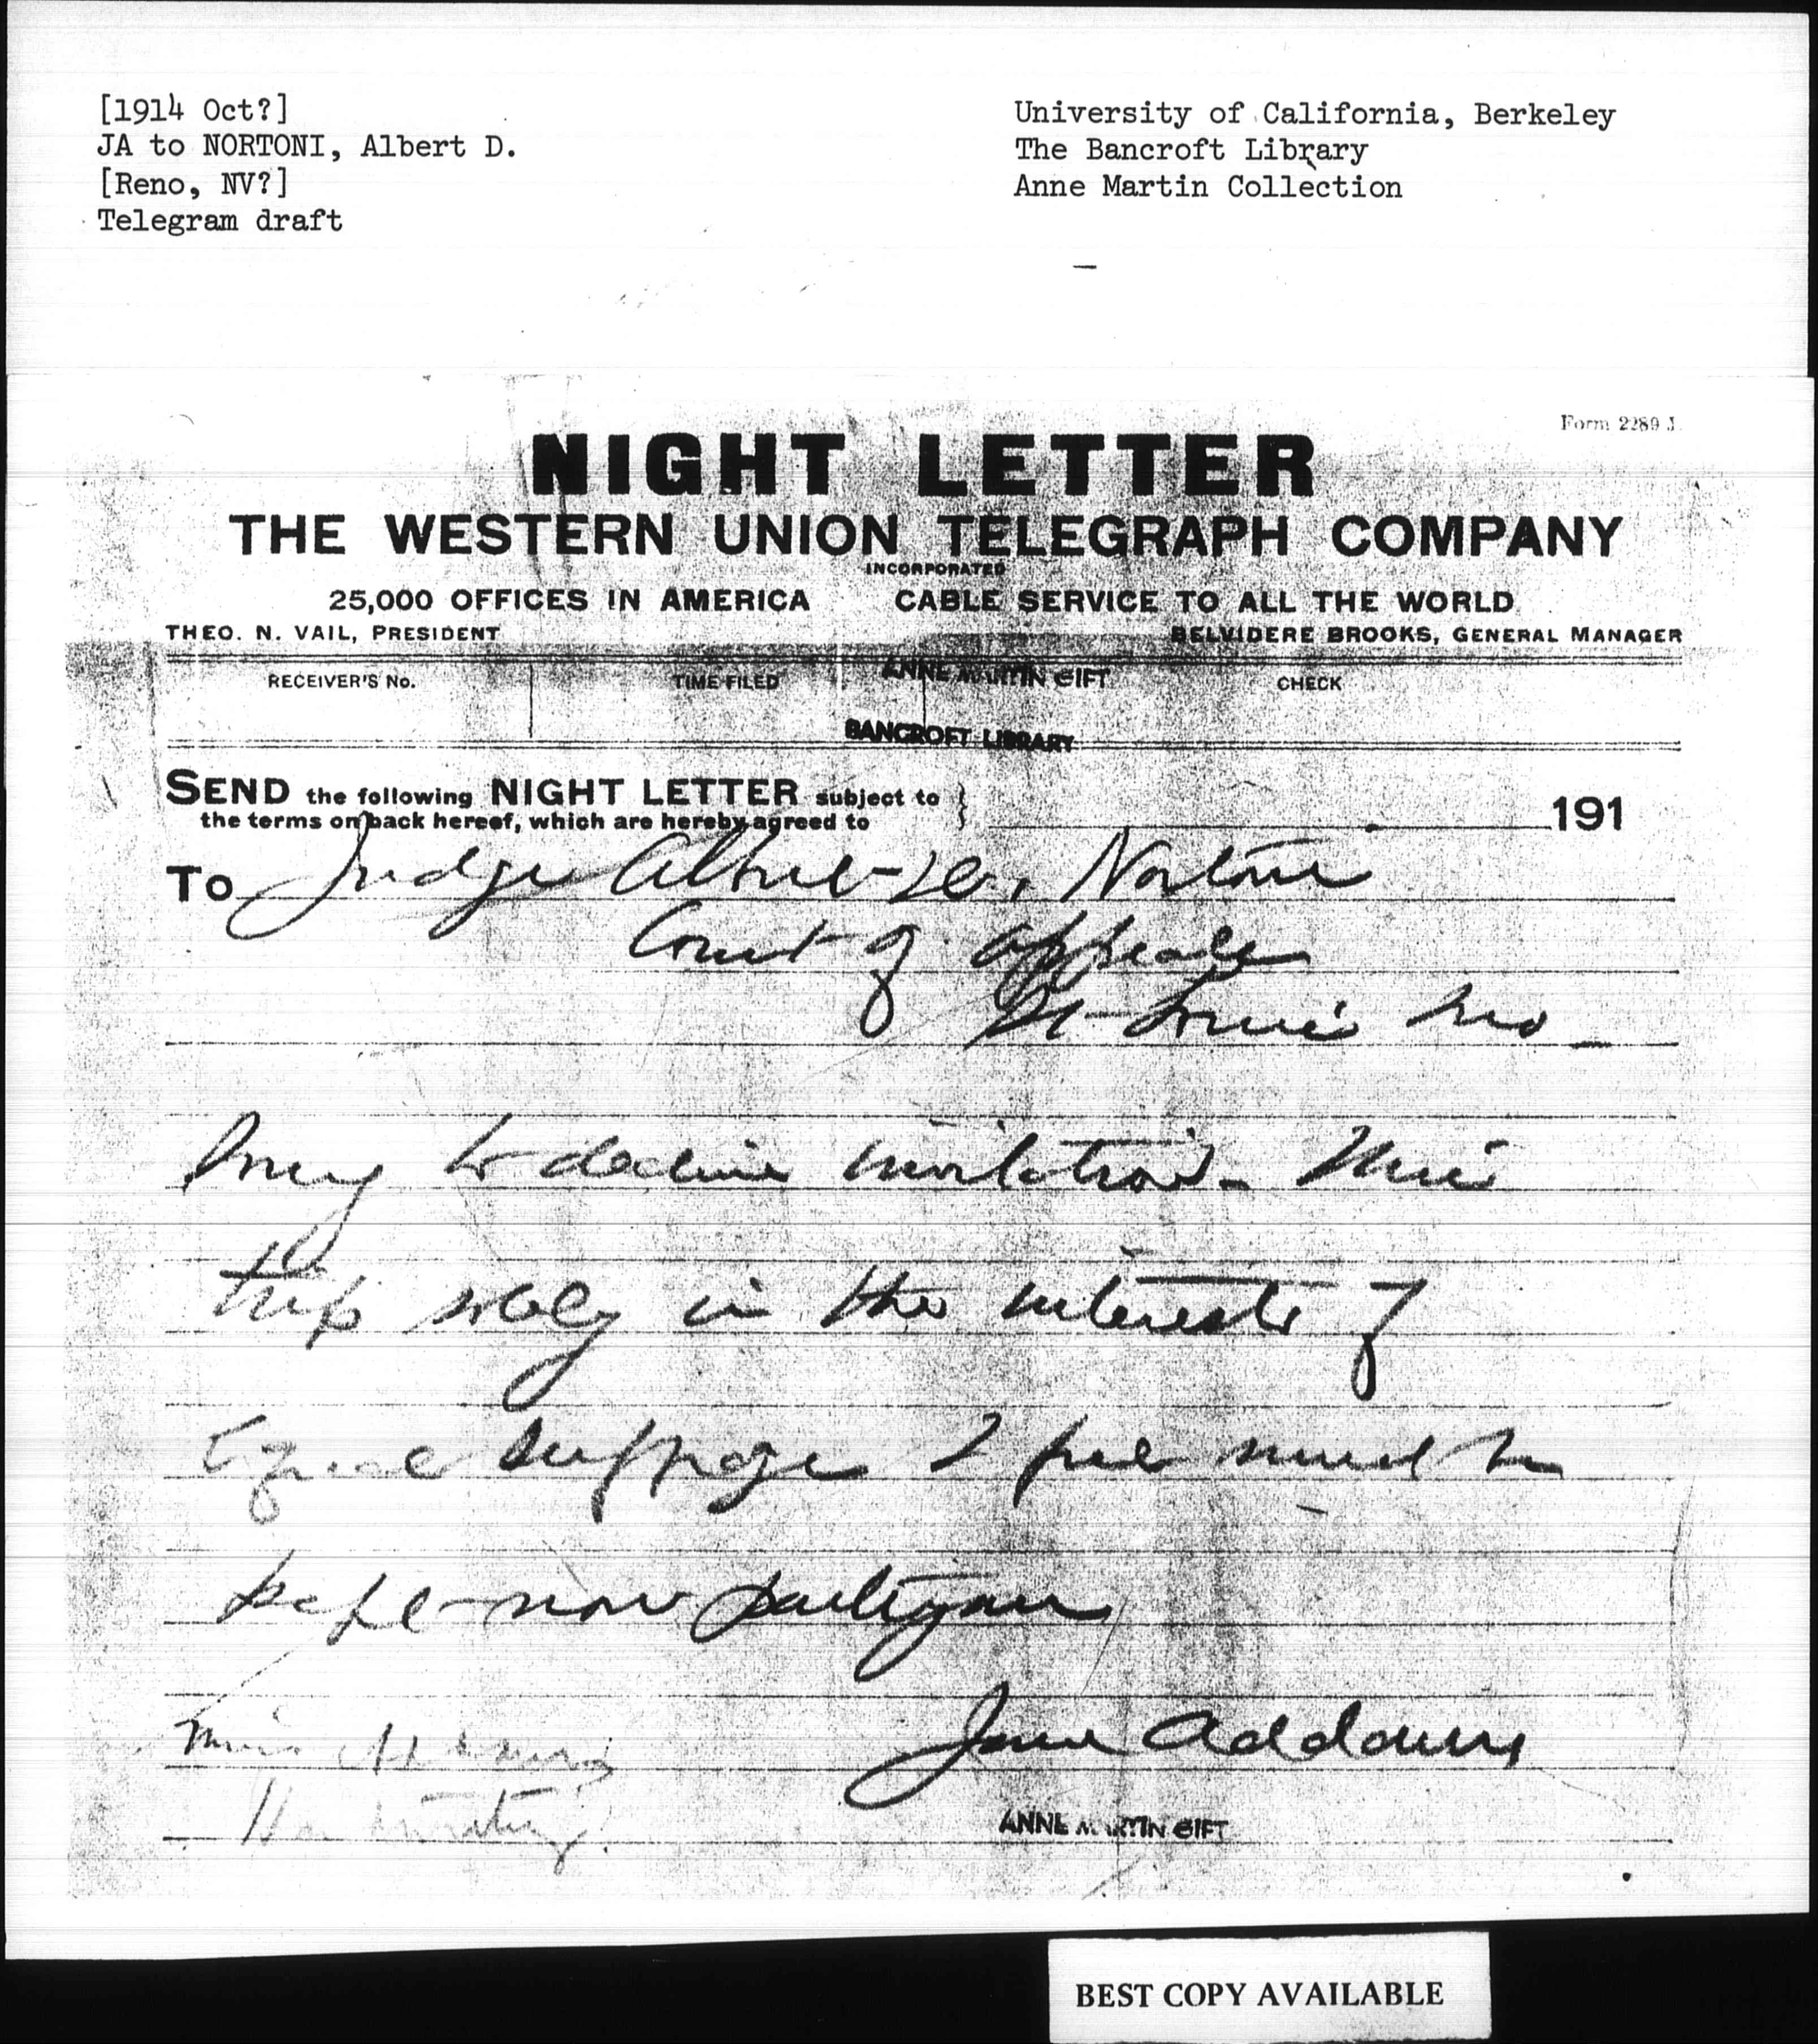 [1914 Oct?]
JA to NORTONI, Albert D.
[Reno, NV?]
Telegram draft
University of California, Berkeley
The Bancroft Library
Anne Martin Collection
Form 2289 J.
NIGHT LETTER
THE WESTERN UNION TELEGRAPH COMPANY
INCORPORATED
25,000 OFFICES IN AMERICA CABLE SERVICE TO ALL THE WORLD
THEO. N. VAIL, PRESIDENT BELVIDERE BROOKS, GENERAL MANAGER
RECEIVER'S No. TIME FILED CHECK
ANNE MARTIN GIFT
BANCROFT LIBRARY
SEND the following NIGHT LETTER subject to
the terms on back hereof, which are hereby agreed to
191
To Judge Albert D. Nortoni
Court of Appeals
St Louis Mo
Sorry to decline invitation. This
trip solely in the interests of
Equal Suffrage I feel must be
kept non partizan
Jane Addams
Miss Addams
Handwriting
ANNE MARTIN GIFT
BEST COPY AVAILABLE